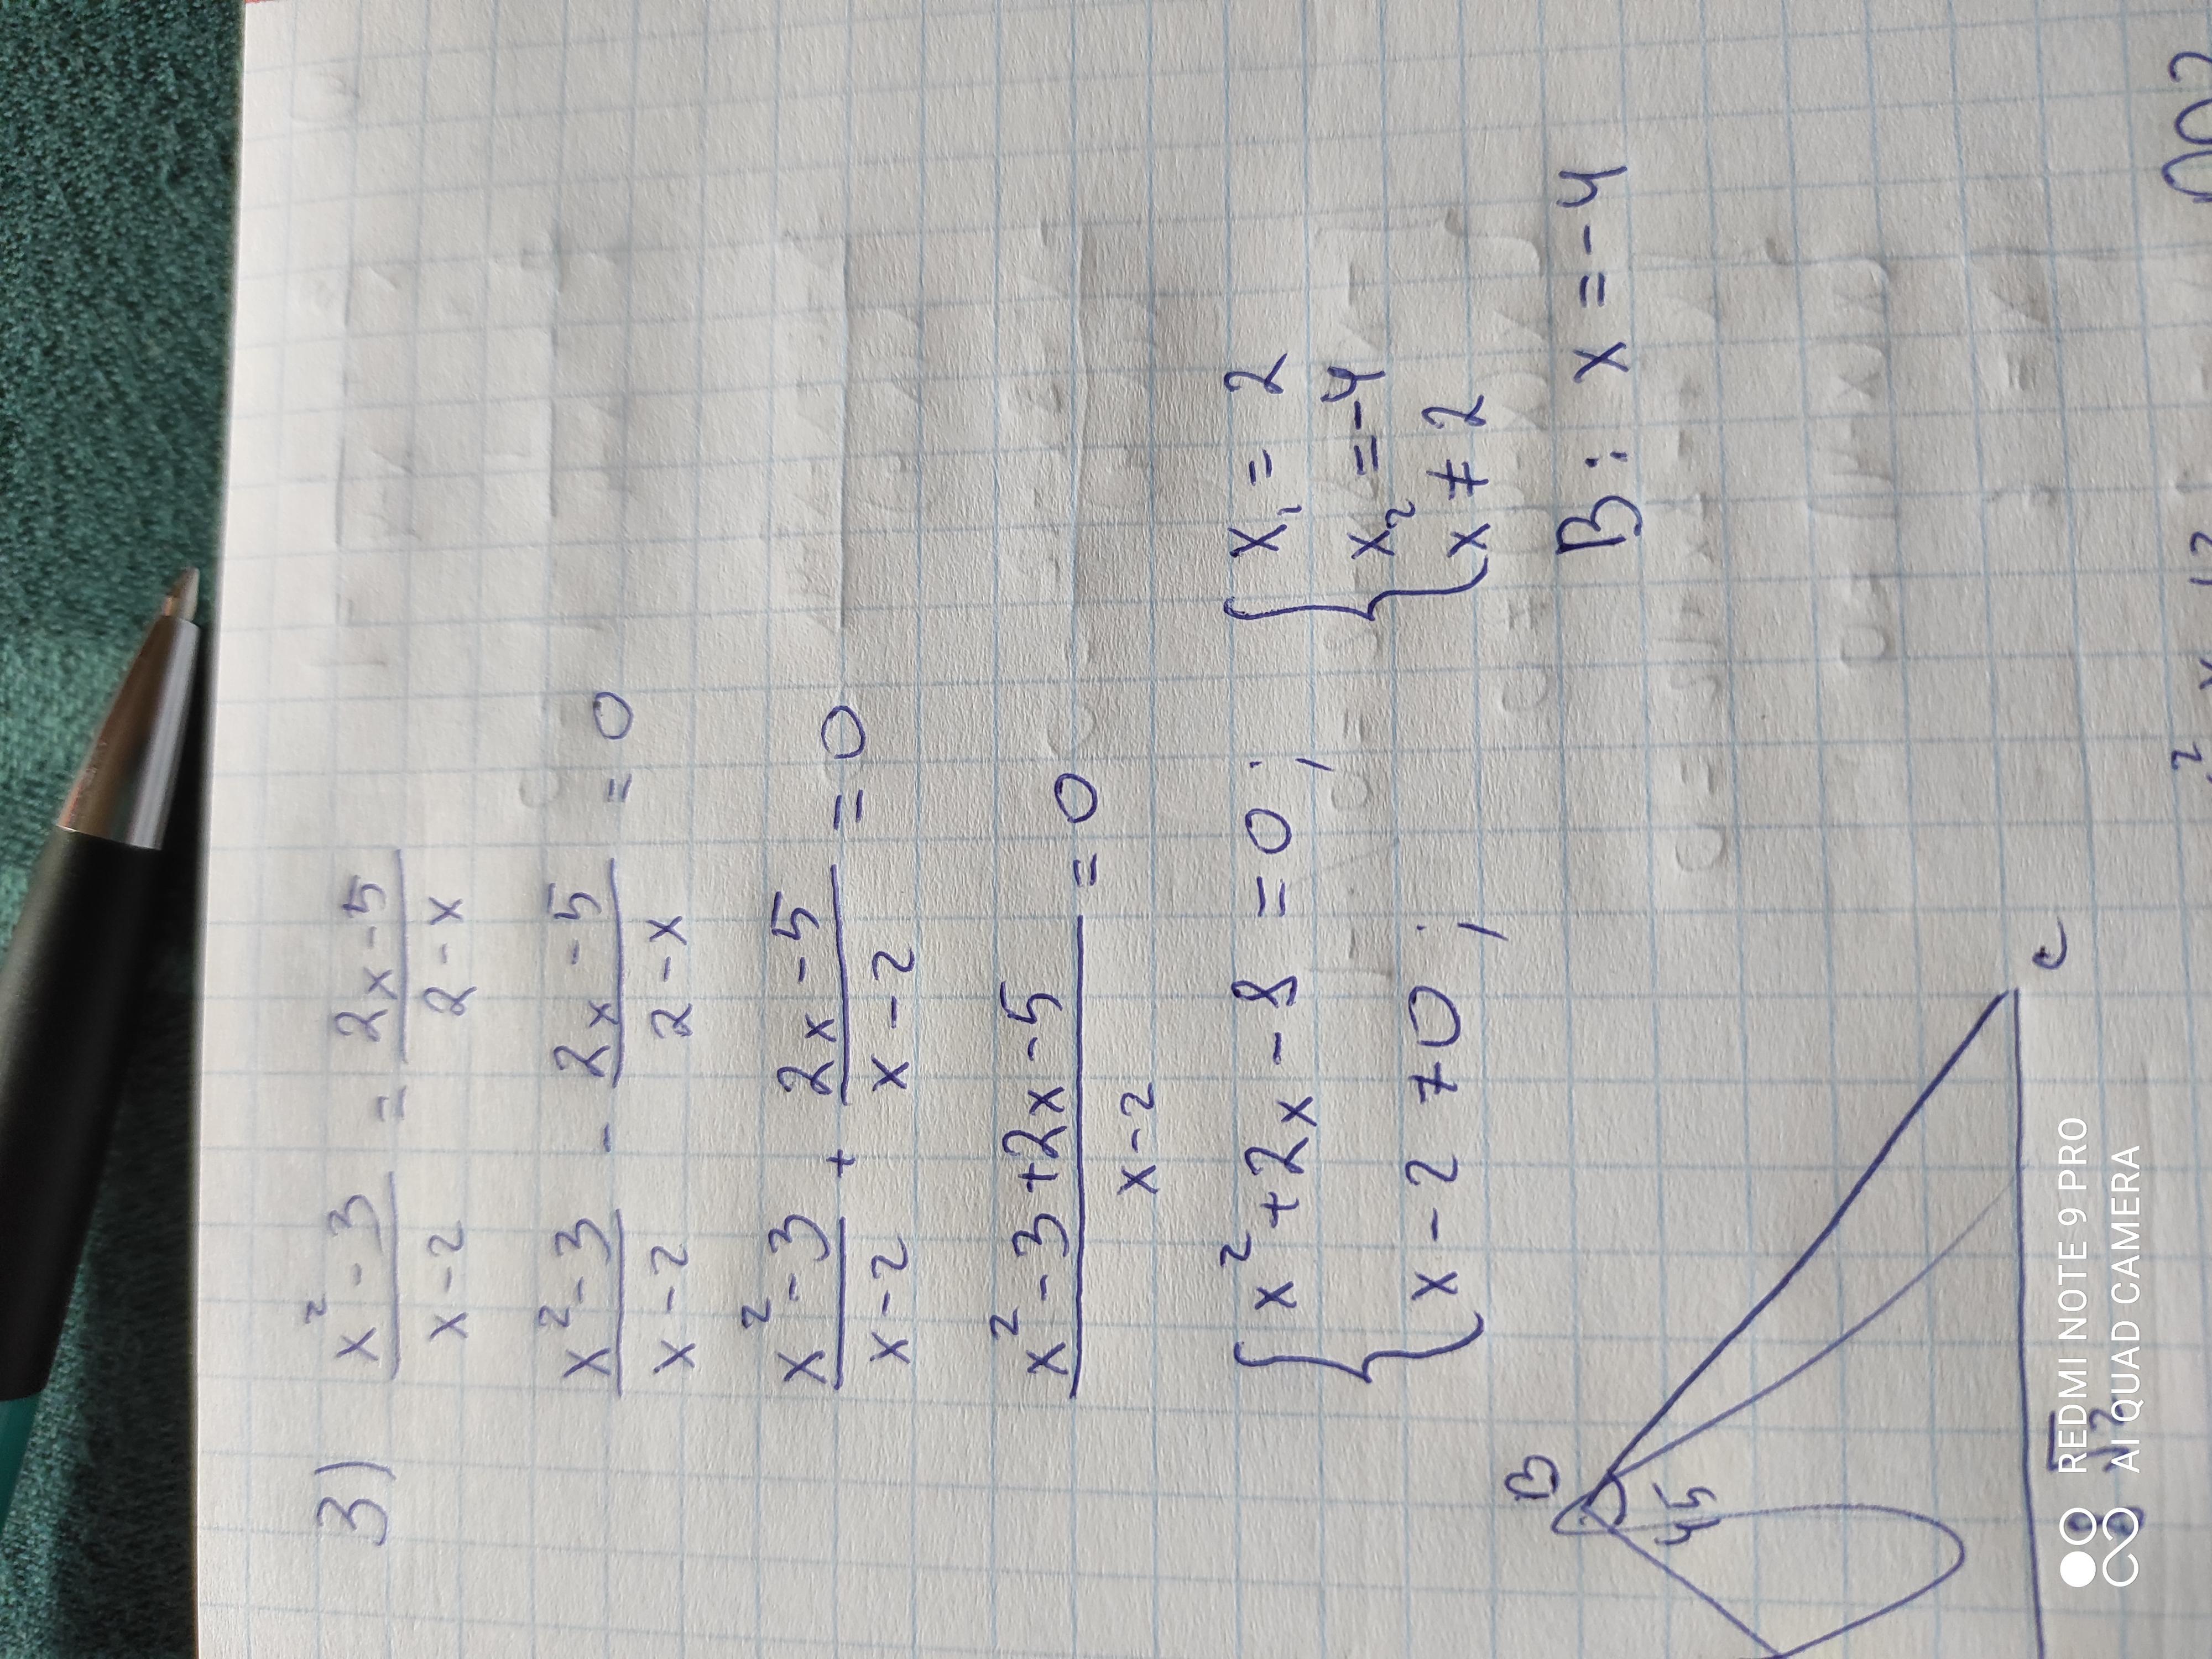 3) x² - 3 / x - 2 = 2x - 5 / 2 - x
x² - 3 / x - 2 - 2x - 5 / 2 - x = 0
x² - 3 / x - 2 + 2x - 5 / x - 2 = 0
x² - 3 + 2x - 5 / x - 2 = 0
{ x² + 2x - 8 = 0;
x - 2 ≠ 0;
{ x₁ = 2
x₂ = -4
x ≠ 2
В: x = -4
B
45
C
REDMI NOTE 9 PRO
AI QUAD CAMERA